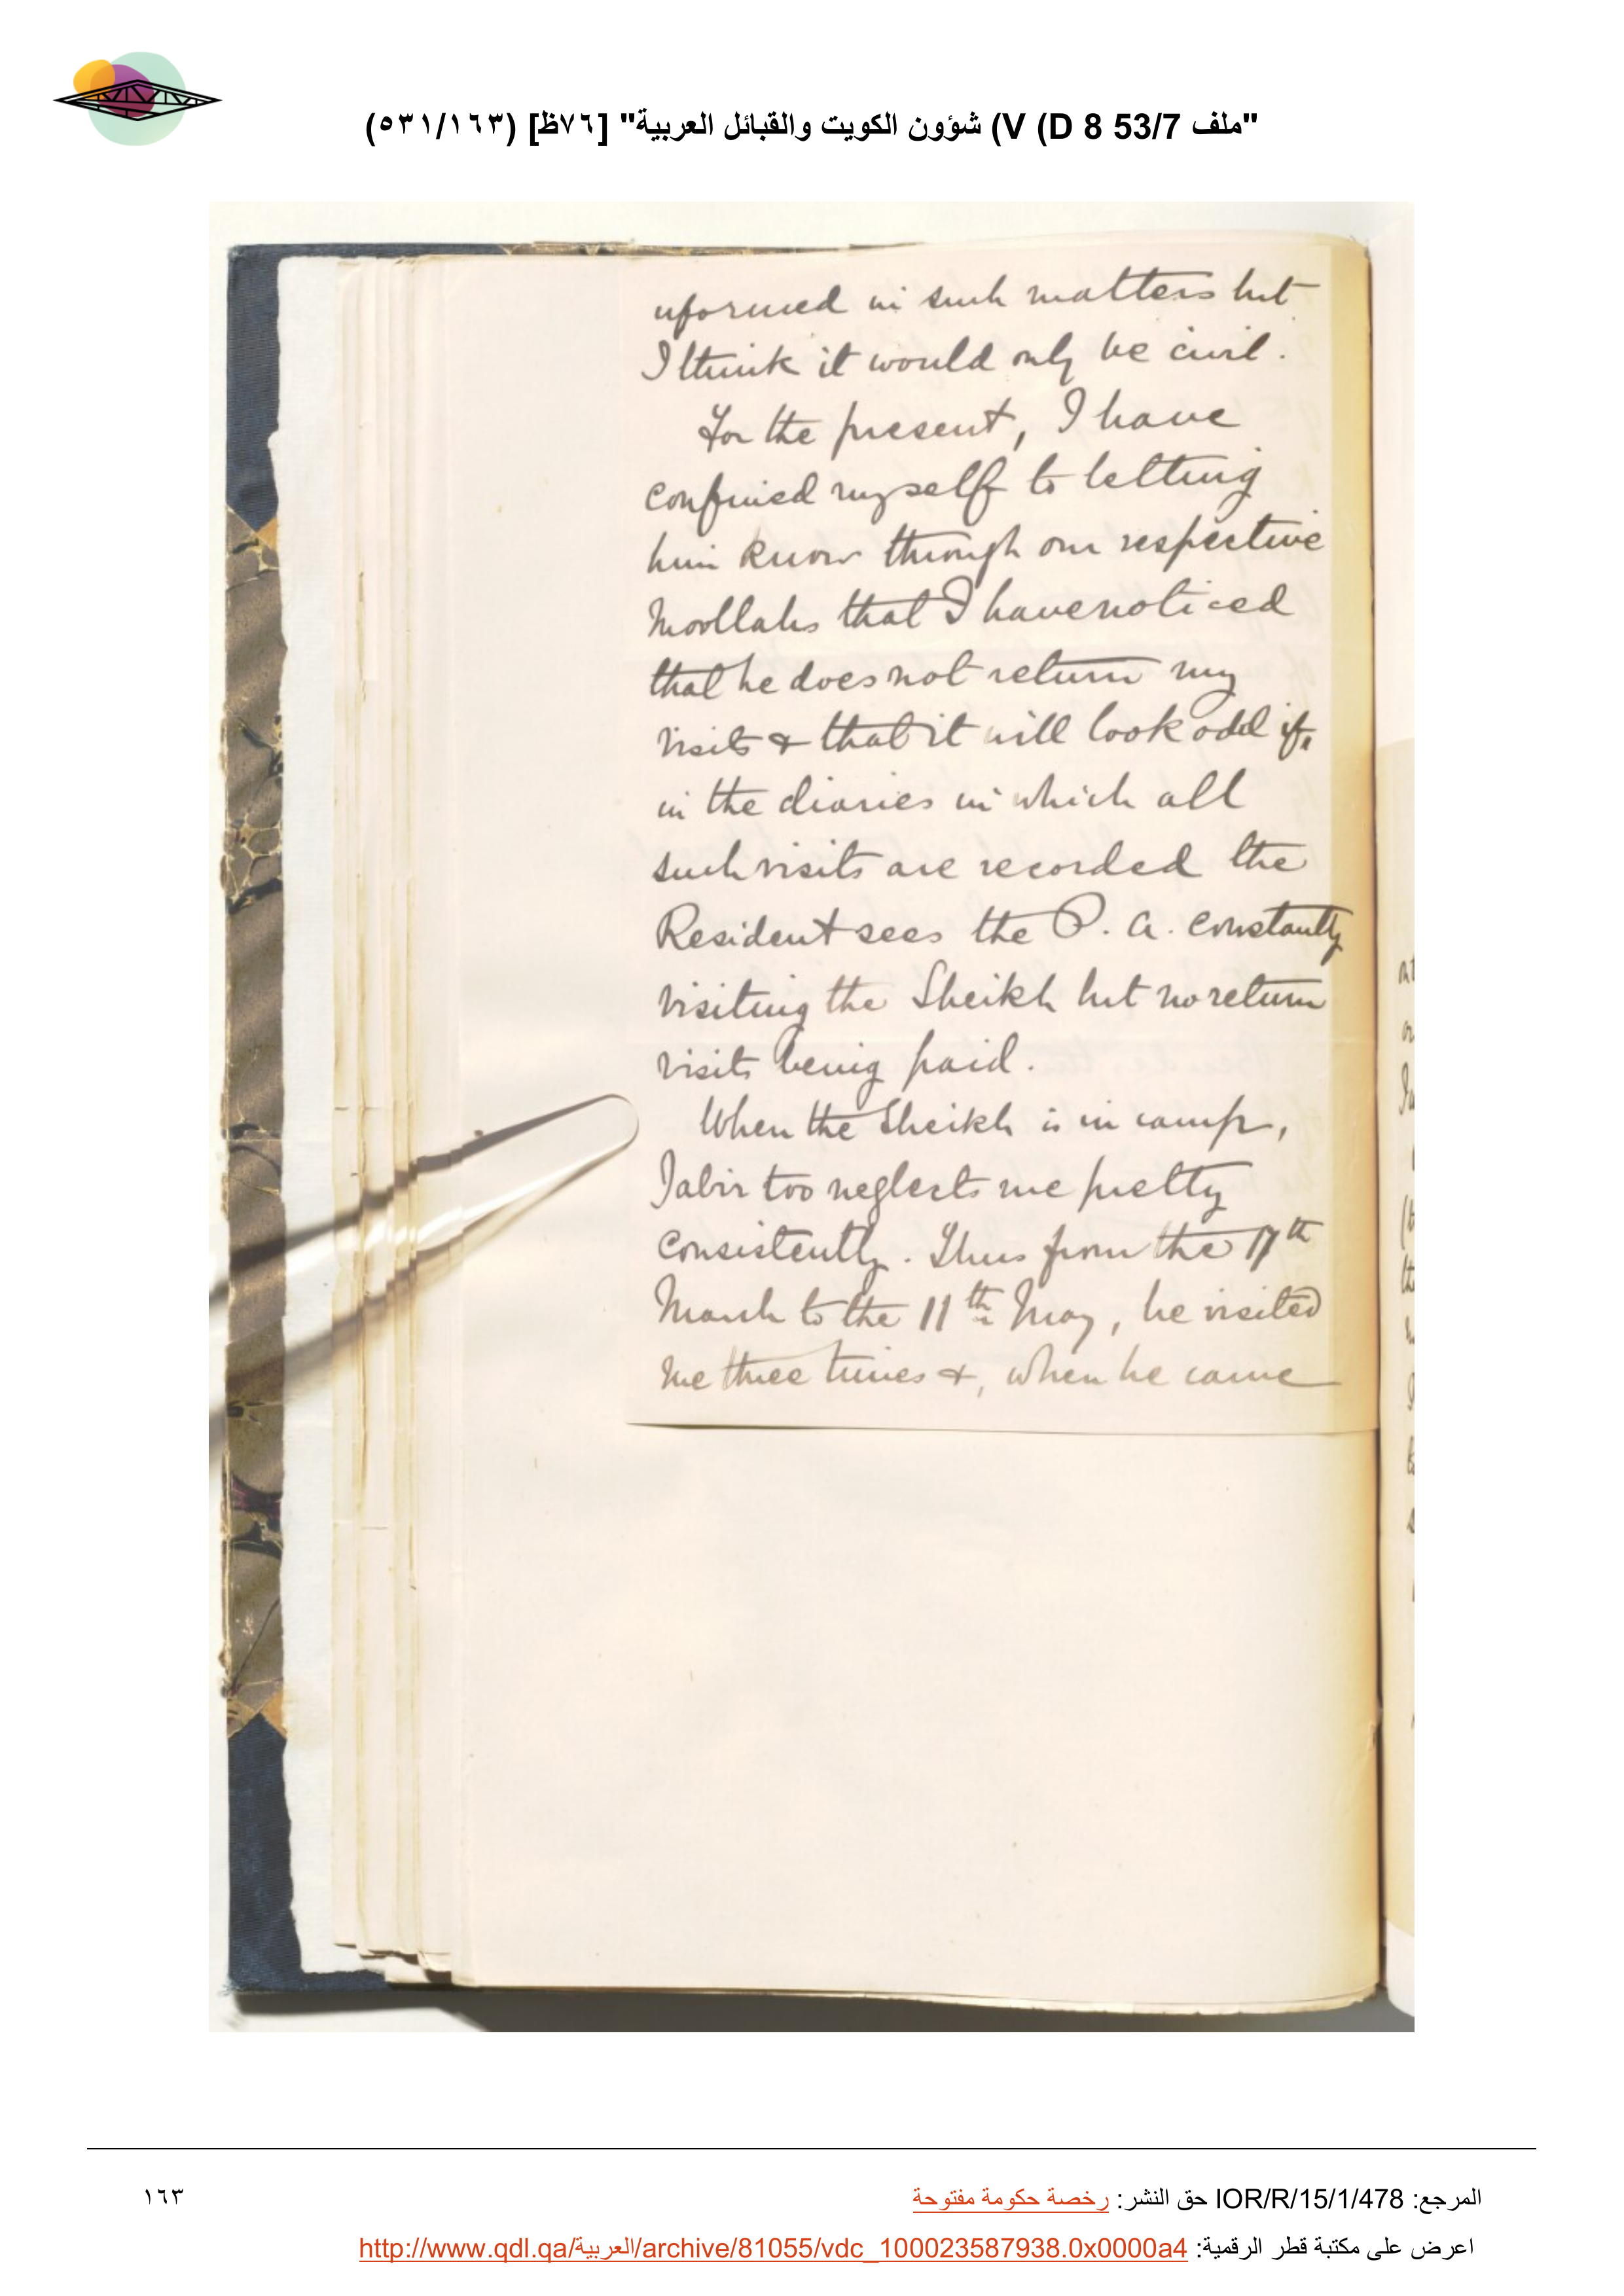 "ملف 53/7 D 8) V) شؤون الكويت والقبائل العربية" [٧٦ظ] (٥٣١/١٦٣)
uformed in such matters but
I think it would only be civil.
For the present, I have
confined myself to letting
him know through our respective
Moollahs that I have noticed
that he does not return my
visits & that it will look odd if,
in the diaries in which all
such visits are recorded the
Resident sees the P. A. constantly
visiting the Sheikh but no return
visits being paid.
When the Sheikh is in camp,
Jabir too neglects me pretty
consistently. Thus from the 17th
March to the 11th May, he visited
me three times &, when he came
المرجع: IOR/R/15/1/478 حق النشر: رخصة حكومة مفتوحة
١٦٣
اعرض على مكتبة قطر الرقمية: http://www.qdl.qa/العربية/archive/81055/vdc_100023587938.0x0000a4